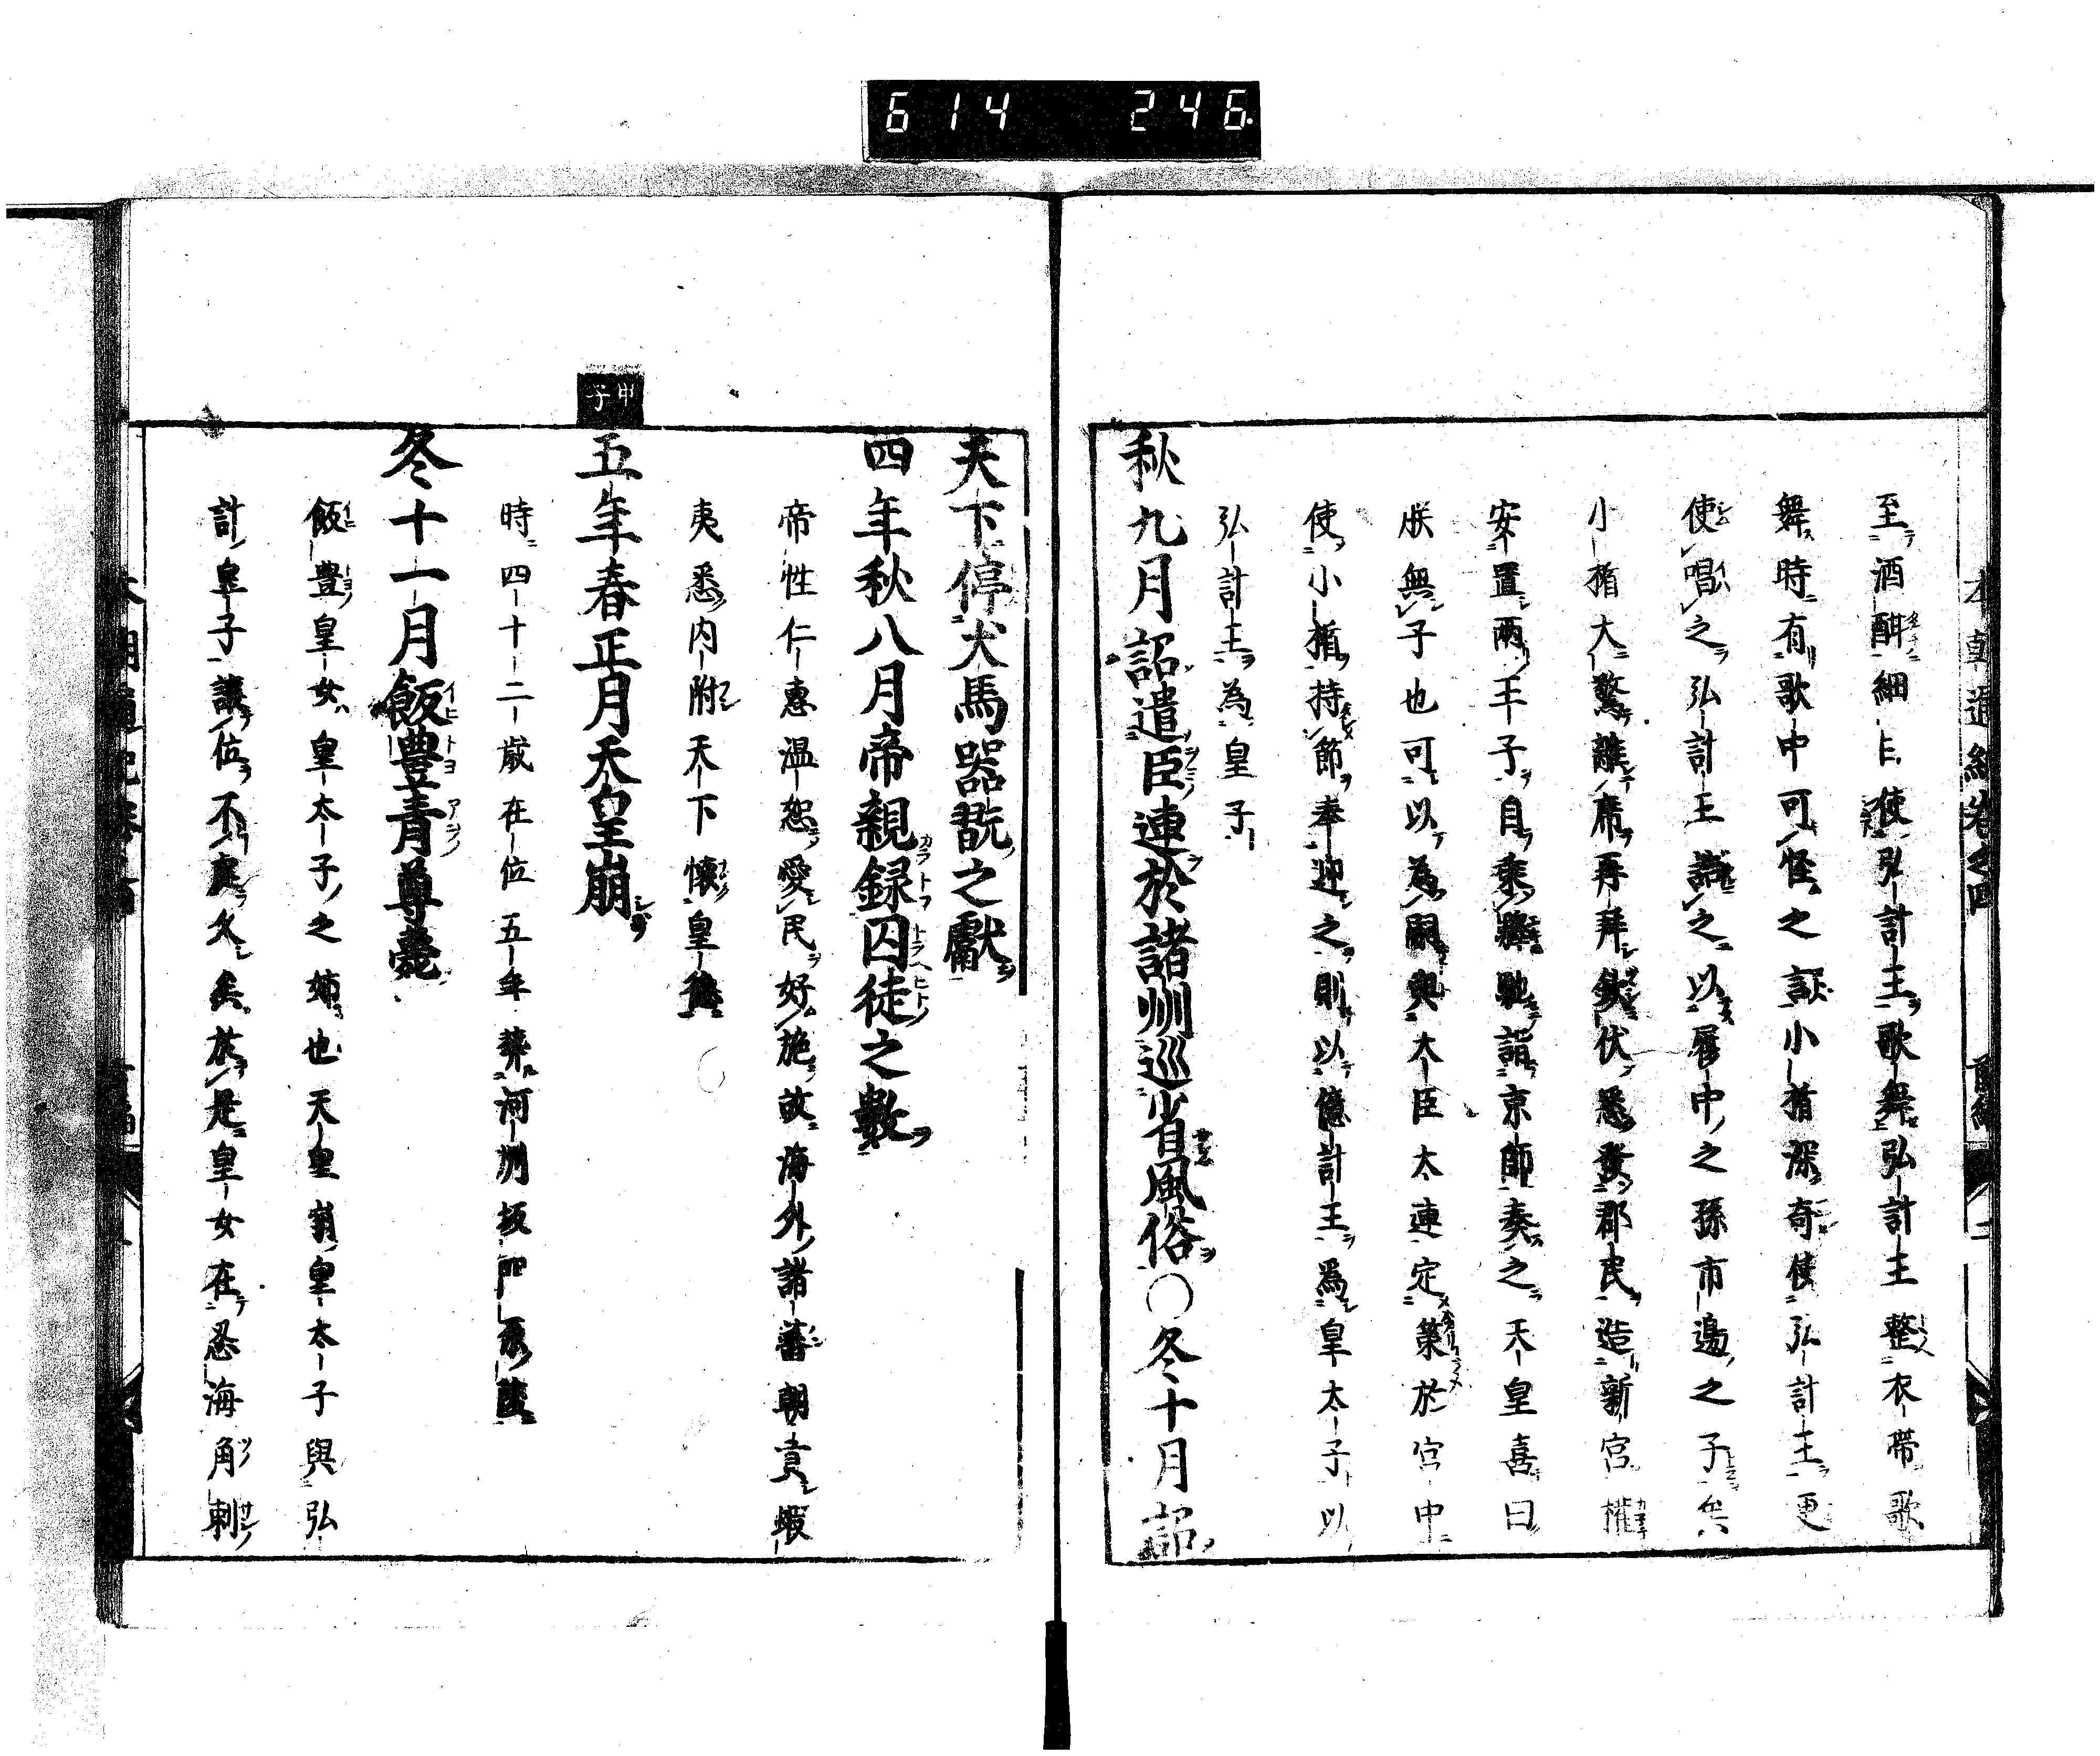 614 246
至酒酣細目使弘計王歌舞弘計王整衣帯歌
舞時有歌中可怪之詞小楯深奇使弘計王更
使唱之弘計王誥之以履中之孫市邊之子矣
小楯大驚離席再拜欽伏悉發郡民造新宮權
安置兩王子自乘驛馳詣京師奏之天皇喜曰
朕無子也可以為嗣與大臣大連定策於宮中
使小楯持節奉迎之則以億計王為皇太子以
弘計王為皇子
秋九月詔遣臣連於諸州巡省風俗○冬十月詔
天下停犬馬器翫之獻
四年秋八月帝親録囚徒之數
帝性仁惠温恕愛民好施故海外諸蕃朝貢蝦
夷悉内附天下懐皇德
甲子
五年春正月天皇崩
時四十二歳在位五年葬河州坂門原陵
冬十一月飯豊青尊薨
飯豊皇女皇太子之姉也天皇崩皇太子與弘
計皇子讓位不處久矣於是皇女在忍海角刺